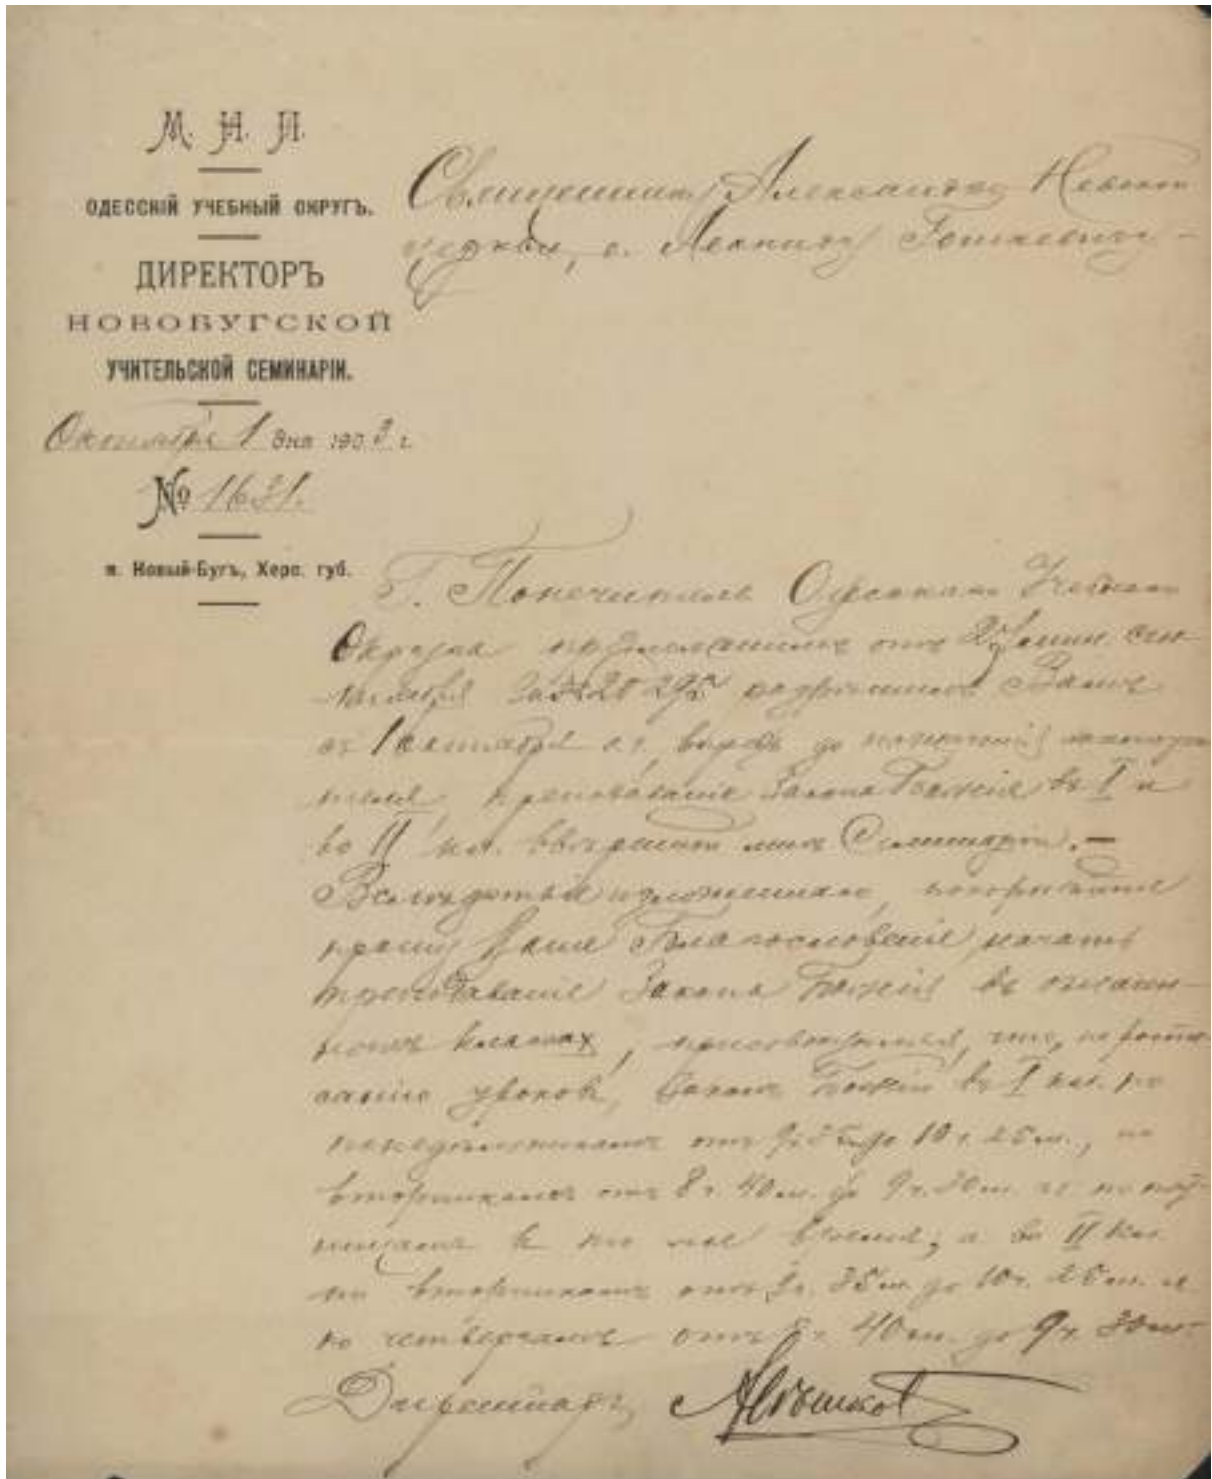 М. Н. П.
ОДЕССКІЙ УЧЕБНЫЙ ОКРУГЪ.
ДИРЕКТОРЪ
НОВОБУГСКОЙ
УЧИТЕЛЬСКОЙ СЕМИНАРІИ.
Октября 1 дня 1903 г.
№ 1631.
м. Новый-Бугъ, Херс. губ.
Священнику Александро Невской
церкви, о.
Г. Попечитель Одесскаго Учебнаго
Округа предложеніемъ отъ 27 мин. сен-
тября за № разрѣшилъ Вамъ
съ 1 сентября с. г., впредь до
преподаваніе Закона Божія въ I и
во II кл. ввѣренной мнѣ Семинаріи. —
Вслѣдствіе изложеннаго, покорнѣйше
прошу Ваше Благословеніе начать
преподаваніе Закона Божія въ означен-
ныхъ классахъ, присовокупляя, что, по роспи-
санію уроковъ, Законъ Божій въ I кл. по
понедѣльникамъ отъ 9 ч. 35 м. до 10 ч. 25 м., по
вторникамъ отъ 8 ч. 40 м. до 9 ч. 30 м. и по пят-
ницамъ въ то же время, а во II кл.
по вторникамъ отъ 9 ч. 35 м. до 10 ч. 25 м. и
по четвергамъ отъ 8 ч. 40 м. до 9 ч. 30 м.
Директоръ,